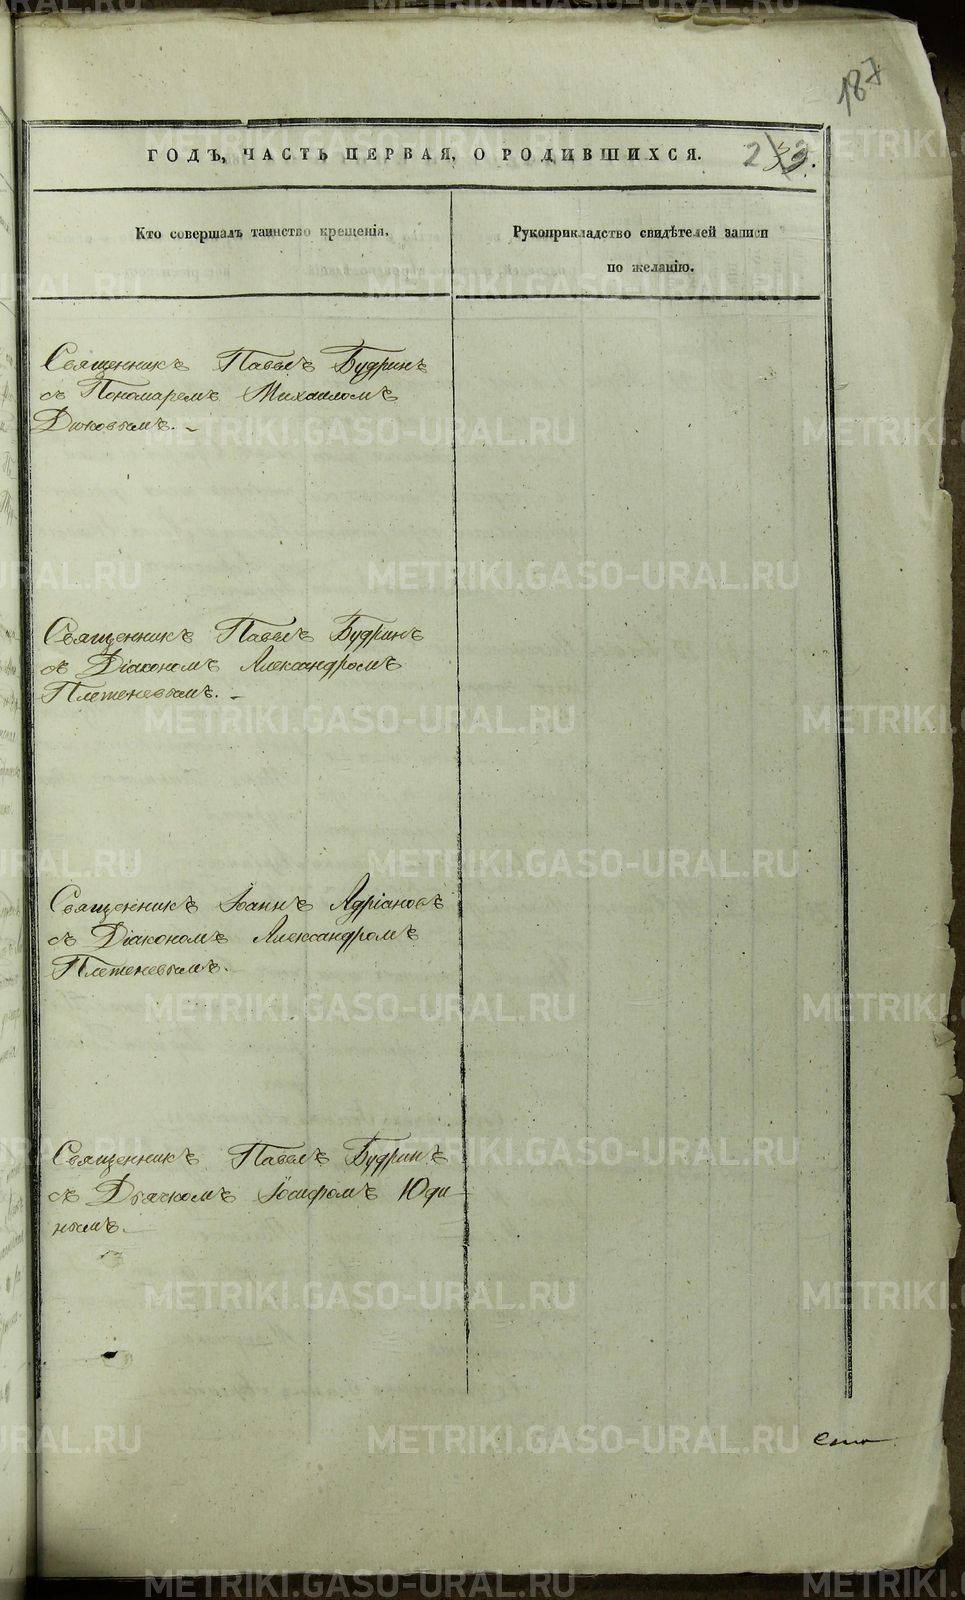 187
ГОДЪ, ЧАСТЬ ПЕРВАЯ, О РОДИВШИХСЯ.
Кто совершалъ таинство крещенія.
Рукоприкладство свидѣтелей записи
по желанію.
Священникъ Павелъ Будринъ
съ Пономаремъ Михаиломъ
Дюковымъ.
Священникъ Павелъ Будринъ
съ Діакономъ Александромъ
Плетеневымъ.
Священникъ Іоаннъ Адріановъ
съ Діакономъ Александромъ
Плетеневымъ.
Священникъ Павелъ Будринъ
съ Дьячкомъ Іосифомъ Юди
нымъ.
METRIKI.GASO-URAL.RU